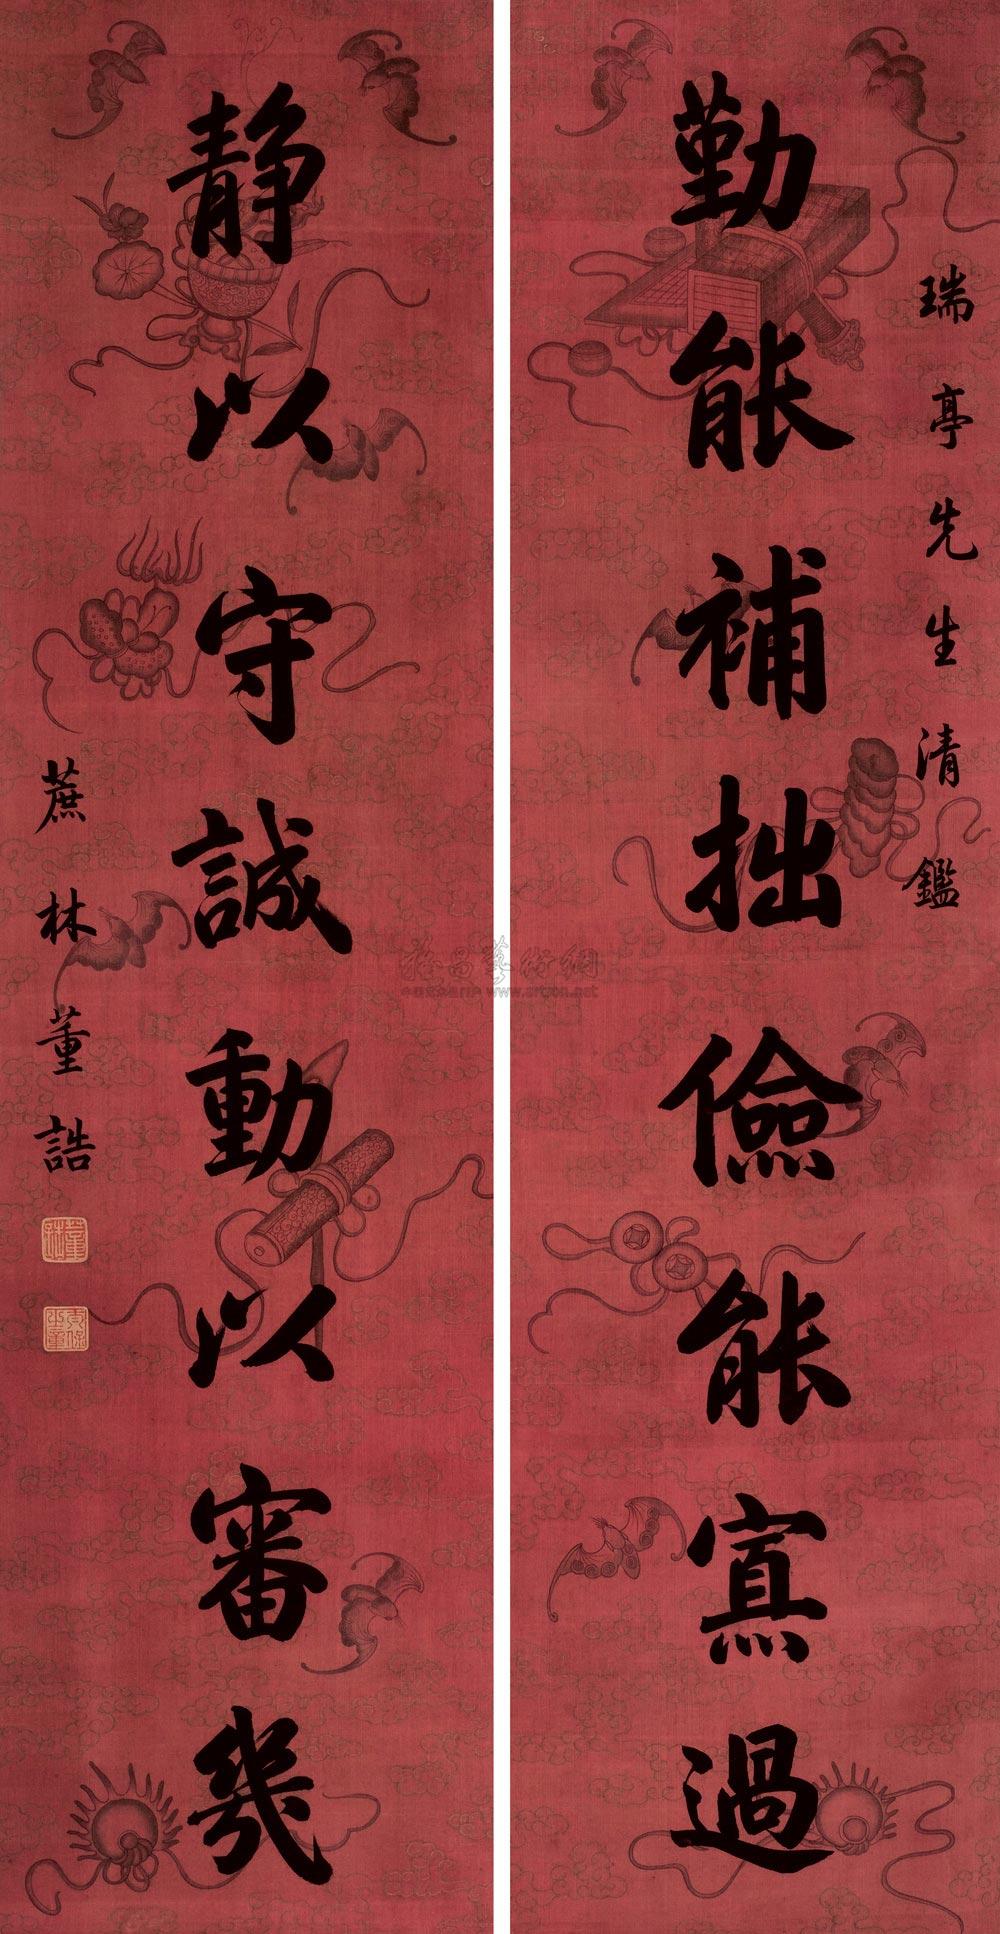 瑞亭先生清鑑
勤能補拙儉能寡過
靜以守誠動以審幾
蔗林董誥
www.artron.net